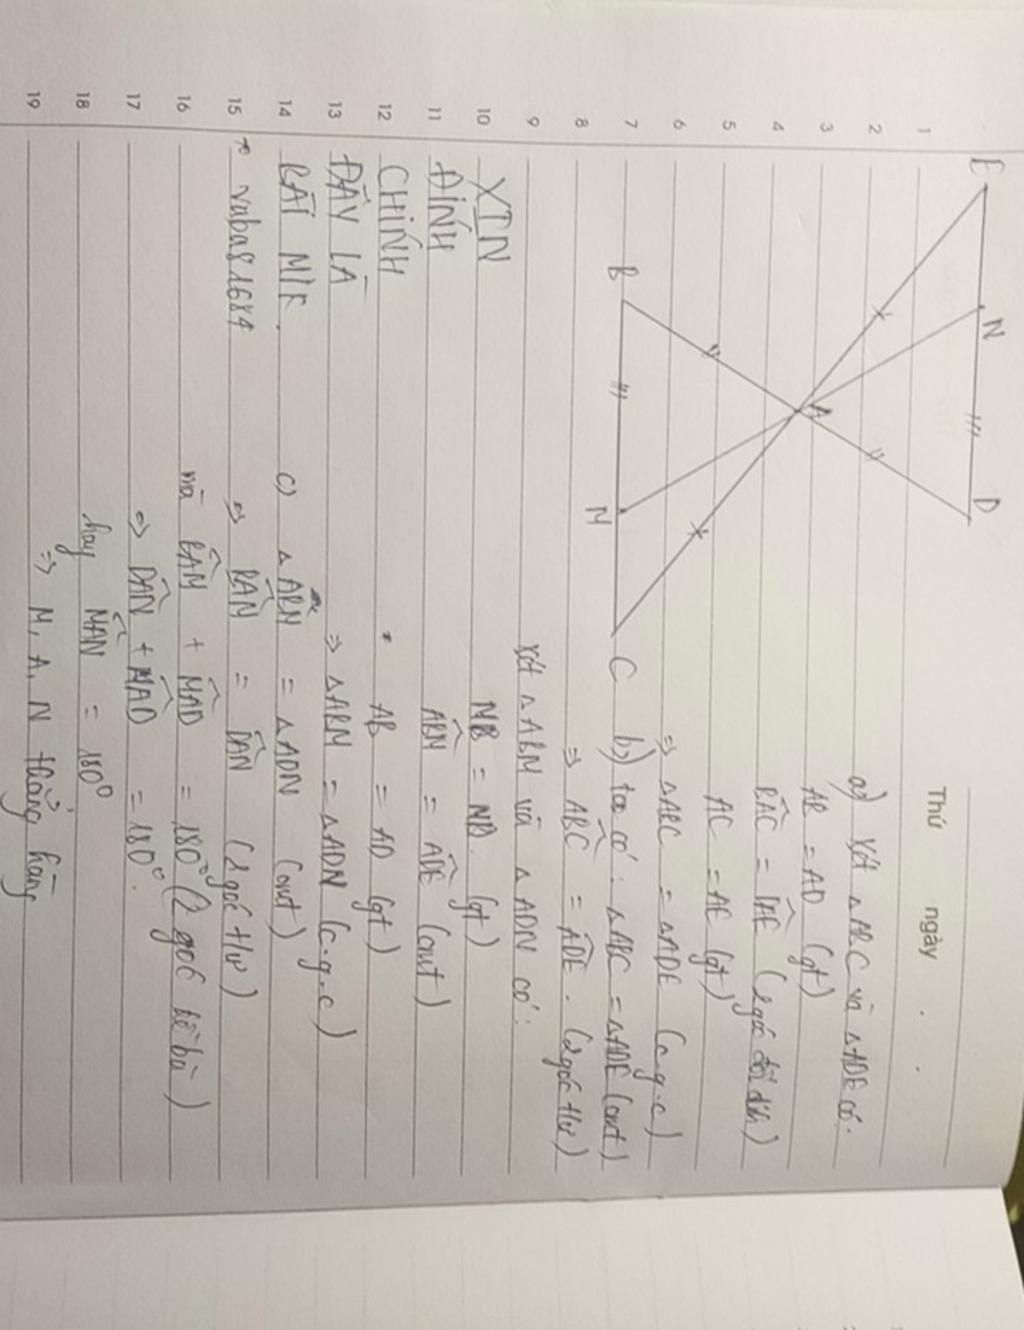 Thứ ngày
E N D
A
B M C
a) Xét △ABC và △ADE có:
AB = AD (gt)
BAC = DAE (2 góc đối đỉnh)
AC = AE (gt)
⇒ △ABC = △ADE (c-g-c)
b) ta có: △ABC = △ADE (cmt)
⇒ ABC = ADE. (2 góc t/ư)
Xét △ABM và △ADN có:
MB = ND. (gt)
ABM = ADE (cmt)
AB = AD (gt)
⇒ △ABM = △ADN (c-g-c)
c) △ABM = △ADN (cmt)
⇒ BAM = DAN (2 góc t/ư)
mà BAM + MAD = 180° (2 góc kề bù)
⇒ DAN + MAD = 180°.
hay MAN = 180°
⇒ M, A, N thẳng hàng
XTN
ĐÍNH
CHÍNH
ĐÂY LÀ
BÀI MIK.
vabag1684
1
2
3
4
5
6
7
8
9
10
11
12
13
14
15
16
17
18
19